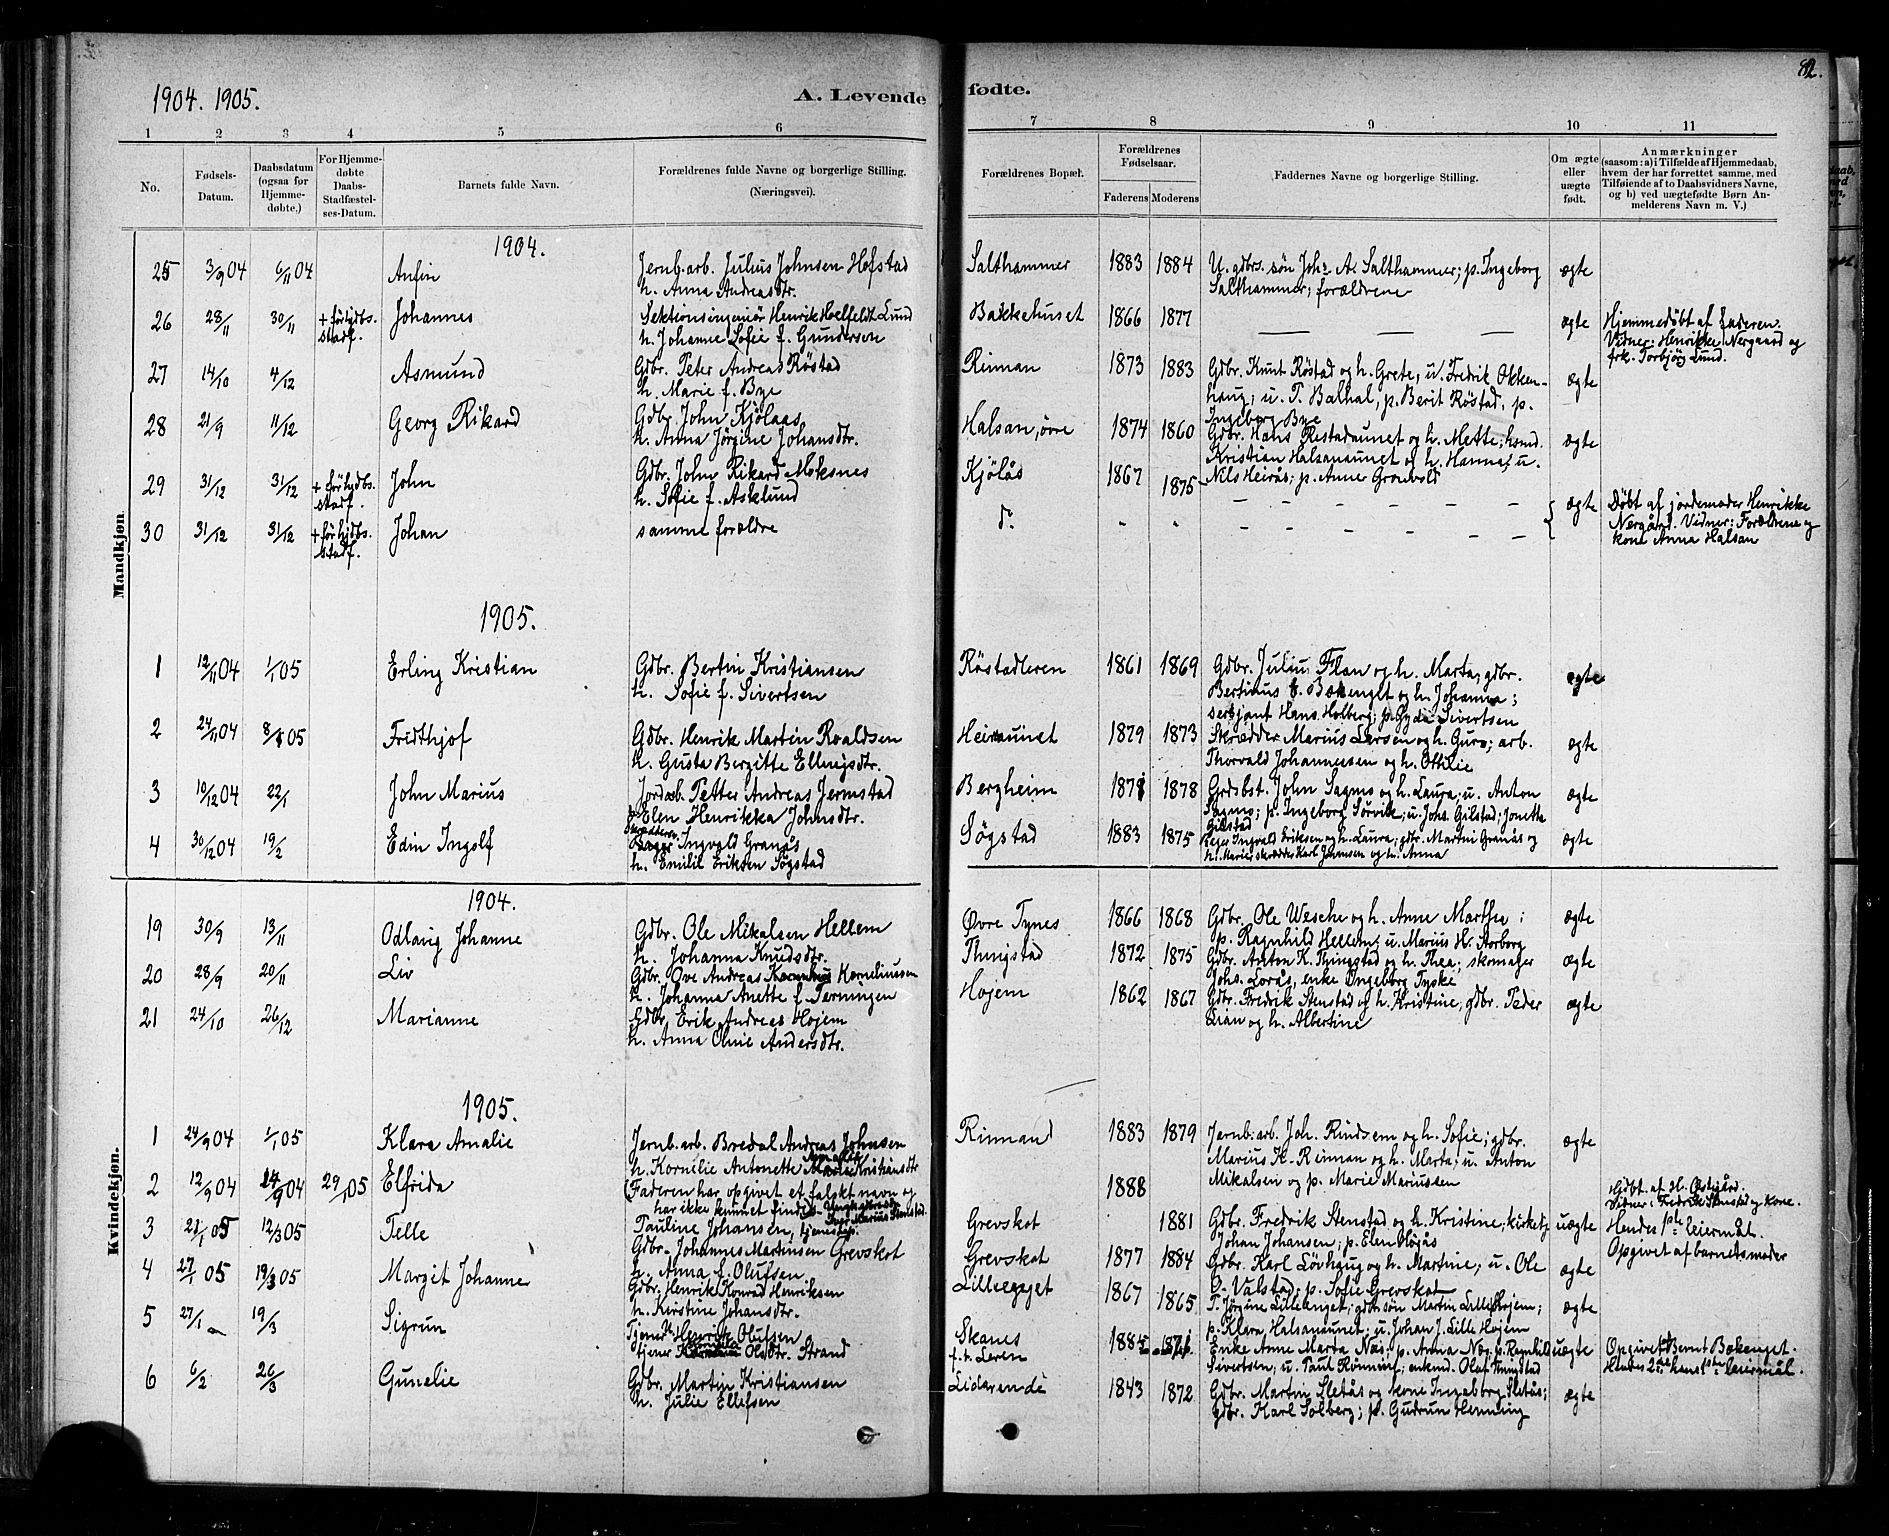 82.
1904. 1905.
A. Levende fødte.
1 2 3 4 5 6 7 8 9 10 11
No.
Fødsels-Datum.
Daabsdatum (ogsaa for Hjemme-døbte.)
For Hjemme-døbte Daabs-Stadfæstel-ses-Datum.
Barnets fulde Navn.
Forældrenes fulde Navne og borgerlige Stilling. (Næringsvei).
Forældrenes Bopæl.
Forældrenes Fødselsaar.
Faderens Moderens
Faddernes Navne og borgerlige Stilling.
Om ægte eller uægte født.
Anmærkninger (saasom: a) i Tilfælde af Hjemmedaab, hvem der har forrettet samme, med Tilføiende af to Daabsvidners Navne, og b) ved uægtefødte Børn An-melderens Navn m. V.)
Mandkjøn
1904.
25 3/9 04 6/11 04 Anfin Jernb. arb. Julius Johnsen Hofstad Salthammer 1883 1884 U. gdbrs. søn Johs A. Salthammer; p. Ingeborg ægte
h. Anna Andreasdtr. Salthammer; forældrene
26 28/11 30/11 + før kjdbs. stadf. Johannes Sektionsingeniør Henrik Hoelfeldt Lund Bakkehuset 1866 1877 — — — ægte Hjemmedøbt af faderen.
h. Johanne Sofie f. Gundersen Vidner: Henrikke Nergaard og
frk. Torbjørg Lund.
27 14/10 4/12 Asmund Gdbr. Peter Andreas Røstad Rinnan 1873 1883 Gdbr. Knut Røstad og h. Grete, u. Fredrik Okken- ægte
h. Marie f. Bye haug; u. T. Balhal, p. Berit Røstad, p.
Ingeborg Bye
28 21/9 11/12 Georg Rikard Gdbr. John Kjølaas Halsan, øvre 1874 1860 Gdbr. Hans Restadaunet og h. Mette; hsmd. ægte
h. Anna Jørgine Johansdtr. Kristian Halsanaunet og h. Hanna; u.
Nils Heirås; p. Anne Grønvold
29 31/12 31/12 + før hjdbs. stadf. John Gdbr. John Rikard Moksnes Kjølås 1867 1875 - - - - ægte Døbt af jordemoder Henrikke
h. Sofie f. Asklund Nergård. Vidner: Forældrene og
30 31/12 31/12 + før hjdbs. stadf. Johan samme forældre do. - - - - - kone Anna Halsan
1905.
1 12/11 04 1/1 05 Erling Kristian Gdbr. Bertin Kristiansen Røstadleren 1861 1869 Gdbr. Julius Flan og h. Marta, gdbr. ægte
h. Sofie f. Sivertsen Bertinus Bækenget og h. Johanna;
sersjant Hans Holberg; p. Gyda Sivertsen
2 24/11 04 8/1 05 Fridthjof Gdbr. Henrik Martin Roaldsen Heiraunet 1879 1873 Skrædder Marius Larsen og h. Guro; arb. ægte
h. Gusta Bergitte Ellingsdtr. Thorvald Johannessen og h. Ottilie
3 10/12 04 22/1 John Marius Jordarb. Petter Andreas Jermstad Bergheim 1871 1878 Grdbst. John Sagmo og h. Laura; u. Anton ægte
h. Elen Henrikka Johnsdtr. Sagmo; p. Ingeborg Sørvik; u. Johs. Gilstad; Jonetta
Gilstad
4 30/12 04 19/2 Edin Ingolf Skrædder Ingvald Granås Søgstad 1883 1875 Ingvald Eriksen og h. Laura; gdbr. Martin Granås og ægte
h. Emilie Eriksen Søgstad h. Marie; skrædder Karl Johansen og h. Anna
Kvindekjøn.
1904.
19 30/9 13/11 Odlaug Johanne Gdbr. Ole Mikalsen Hellem Øvre Tynes 1866 1868 Gdbr. Ole Wesche og h. Anne Marthea; ægte
h. Johanna Knudsdtr. p. Ragnhild Hellem; u. Marius H. Aorborg
20 28/9 20/11 Liv Gdbr. Ove Andreas Korneliussen Thingstad 1872 1875 Gdbr. Anton K. Thingstad og h. Thea; skomager ægte
h. Johanna Anette f. Tørningen Johs. Lorås, enke Ingeborg Tyske
21 24/10 26/12 Marianne Gdbr. Erik Andreas Hojem Hojem 1862 1867 Gdbr. Fredrik Stenstad og h. Kristine, gdbr. Peder ægte
h. Anna Oline Andersdtr. Lian og h. Albertine
1905.
1 24/9 04 1/1 05 Klara Amalie Jernb. arb. Bredal Andreas Johnsen Rinnand 1883 1879 Jernb. arb. Joh. Rindsem og h. Sofie; gdbr. ægte
h. Kornelie Antonette Amalie Kristiansdtr Marius K. Reinnan og h. Marta; u. Anton
Mikalsen og p. Marie Mariussen
2 12/9 04 24/9 04 29/1 05 Elfrida (Faderen har opgivet et falskt navn og 1888 Hjdbt. af H. Østgård.
har ikke kunnet findes. Vidner: Fredrik Stenstad og kone.
3 21/1 05 12/3 05 Telle Pauline Johansen, tjenestep. Grevskot 1881 Gdbr. Fredrik Stenstad og h. Kristine; kirketj. uægte Hendes 1ste leiermål.
Johan Johansen; p. Elen Højås Opgivet af barnets moder
4 27/1 05 19/3 05 Margit Johanne Gdbr. Johannes Martinsen Grevskot Grevskot 1877 1884 Gdbr. Karl Løvhaug og h. Martine; u. Ole ægte
h. Anna f. Olufsen O. Valstad, p. Sofie Grevskot
5 27/1 19/3 Sigrun Gdbr. Henrik Konrad Henriksen Lilleenget 1867 1865 T. Jørgine Lilleenget; gdbr. søn Martin Lille Hojem; ægte
h. Kirstine Johansdtr. p. Klara Halsanaunet; u. Johan J. Lille Hojem
Tjener Henrik Olufsen Ekanes 1885 1876 Enke Anne Marta Næs; p. Anna Næs, Ragnhild uægte Opgivet Bernt Bækenget.
tjener Olsdtr. Strand f. t. Leren Sivertsen; u. Paul Rønning; enkmd. Olaf Tingstad Hendes 2det hans 1ste leiermål.
6 6/2 26/3 Gunelie Gdbr. Martin Kristiansen Lidarende 1843 1872 Gdbr. Martin Sletås og kone Ingeborg Sletås; ægte
h. Julie Ellefsen gdbr. Karl Solberg; p. Gudrun Henning